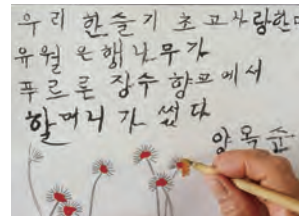 우리 한슬기 초고사랑한다
유월 은행나무가
푸르른 장수 향교에서
할머니가 썼다
양옥순